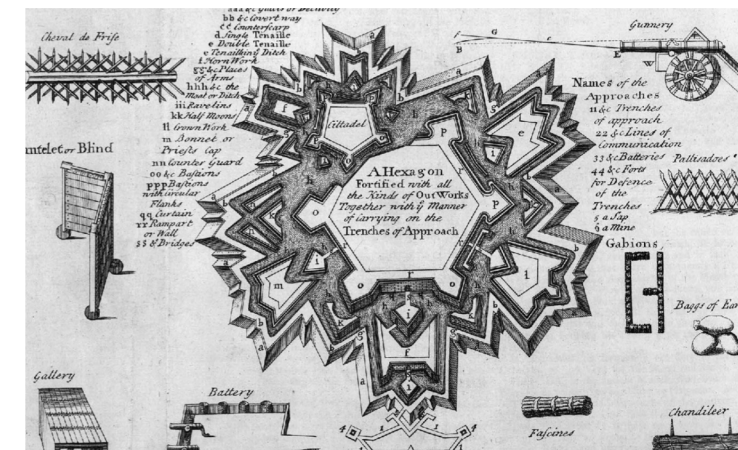 aaa &c Glacis or Declivity
bb &c Covert way
cc Counterscarp
d Single Tenaille
e Double Tenaille
e Tenailling Ditch
f Horn Work
gg &c Places
of Arms
hhh &c the
Moat or Ditch
iii Ravelins
kk Half Moons
ll Crown Work
m Bonnet or
Priests Cap
nn Counter Guard
oo &c Bastions
ppp Bastions
with circular
Flanks
qq Curtain
rr Rampart
or Wall
ss & Bridges
Cheval de Frise
or Blind
Gallery
Battery
Cittadel
A Hexagon
Fortified with all
the Kinds of Out Works
Together with ye Manner
of Carrying on the
Trenches of Approach
Gunnery
Names of the
Approaches
11 &c Trenches
of approach
22 &c Lines of
Communication
33 &c Batteries
44 &c Forts
for Defence
of the
Trenches
5 a Sap
6 a Mine
Pallisadoes
Gabions
Baggs of Ear
Fascines
Chandileer